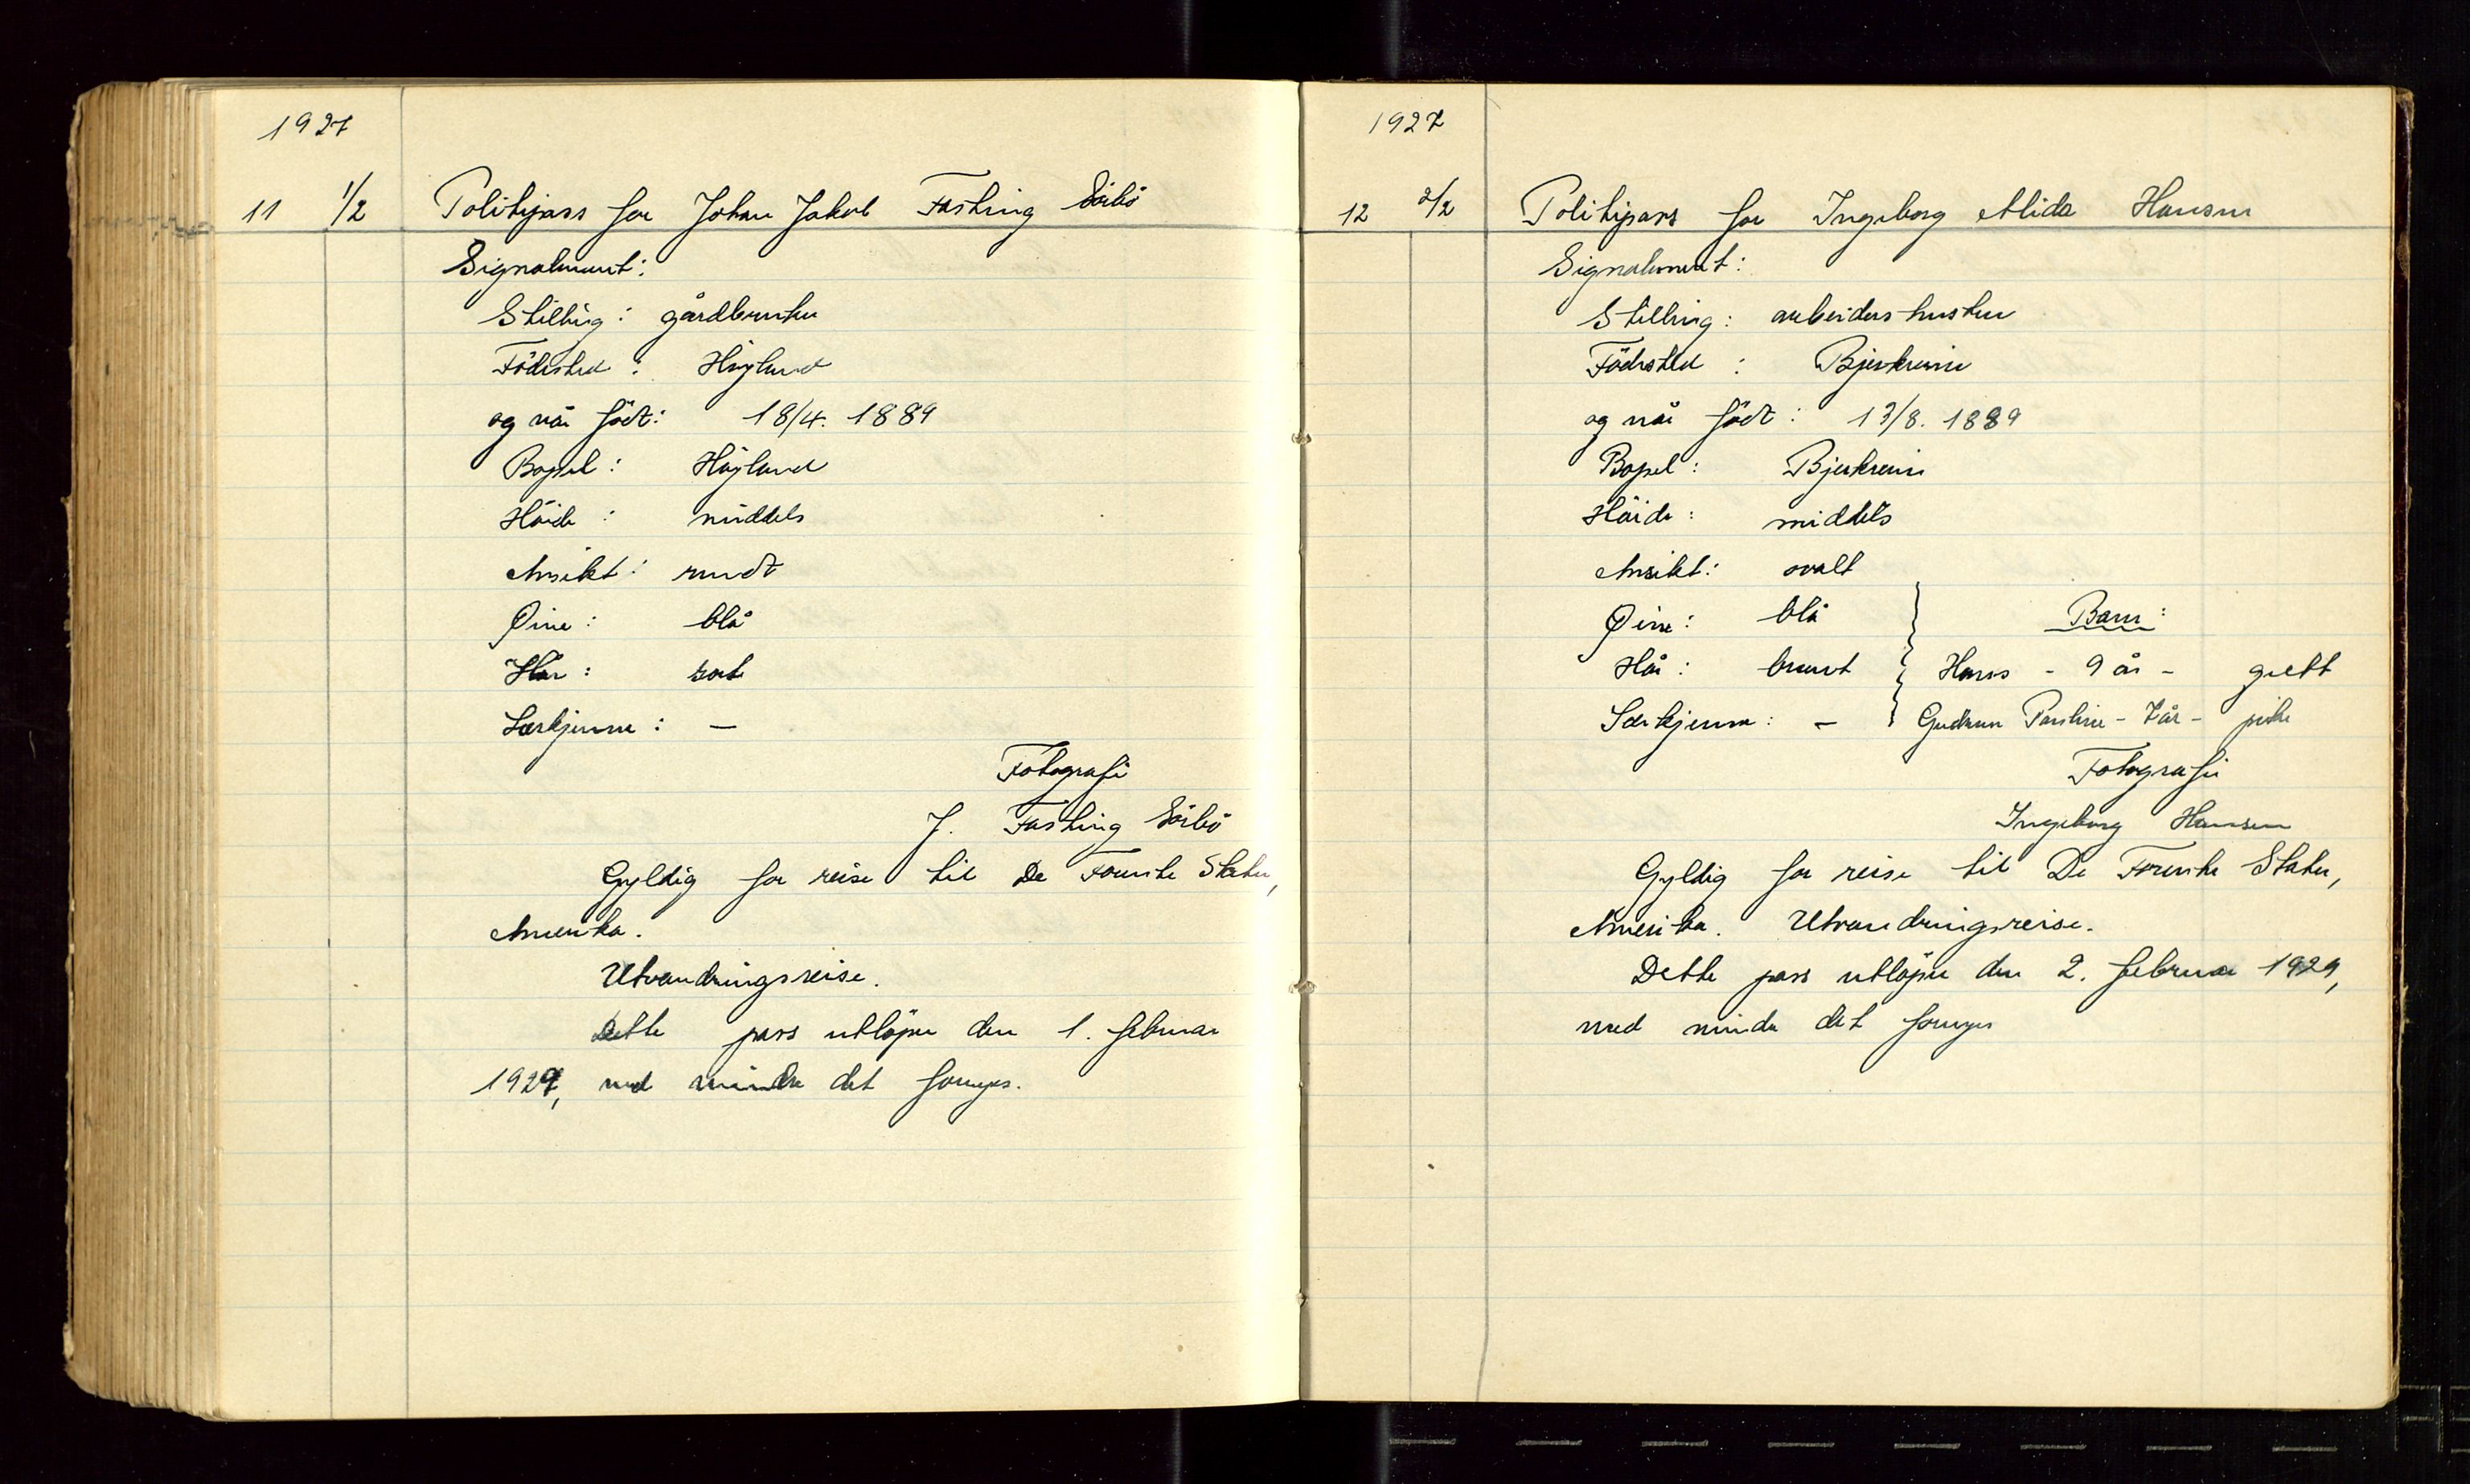 1927
11 1/2 Politipass for Johan Jakob Fasting Sörbö
Signalement:
Stilling: gårdbruker
Födested: Höyland
og når född: 18/4. 1889
Bopel: Höyland
Höide: middels
Ansikt: rundt
Øine: blå
Hår: sort
Særkjenne: —
Fotografi
J. Fasting Sörbö
Gyldig for reise til De Forente Stater,
Amerika.
Utvandringsreise.
Dette pass utlöper den 1. februar
1929, med mindre det fornyes.
1927
12 2/2 Politipass for Ingeborg Alida Hansen
Signalement:
Stilling: arbeiders hustru
Födested: Bjerkreim
og når född: 13/8. 1889
Bopel: Bjerkreim
Höide: middels
Ansikt: ovalt
Øine: blå Barn:
Hår: brunt Hans - 9 år - gutt
Særkjenne: — Gudrun Pauline - 7 år - pike
Fotografi
Ingeborg Hansen
Gyldig for reise til De Forente Stater,
Amerika. Utvandringsreise.
Dette pass utlöper den 2. februar 1929,
med mindre det fornyes